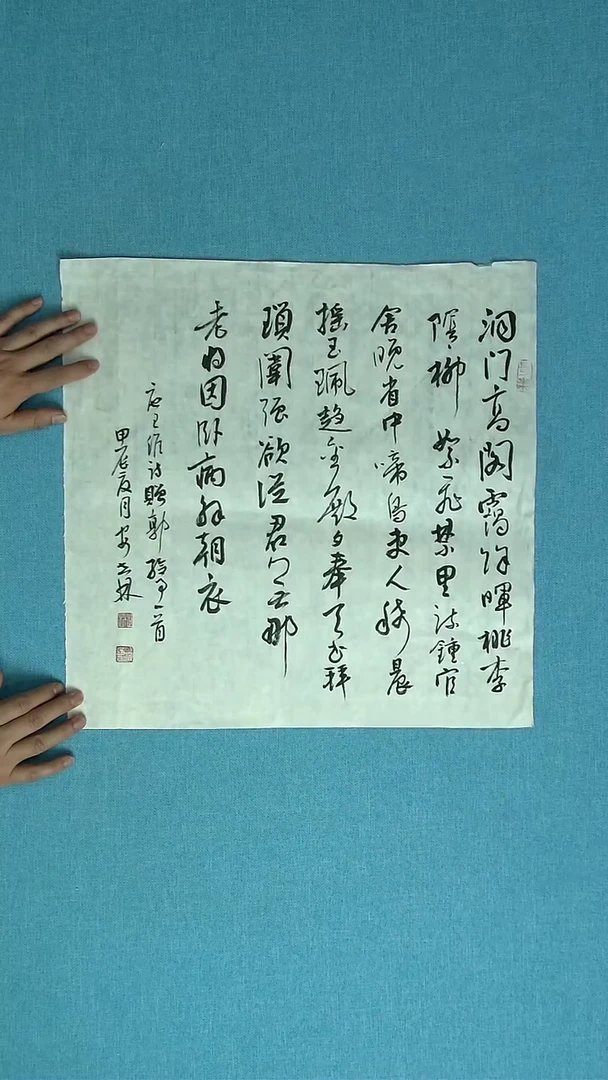 洞门高阁靄馀暉桃李
陰〻柳絮飞禁里疏鍾官
舍晚省中啼鸟吏人稀晨
摇玉珮趋金殿夕奉天书拜
瑣闈强欲從君无那
老将因卧病解朝衣
王维诗赠郭给事一首
甲辰夏月林